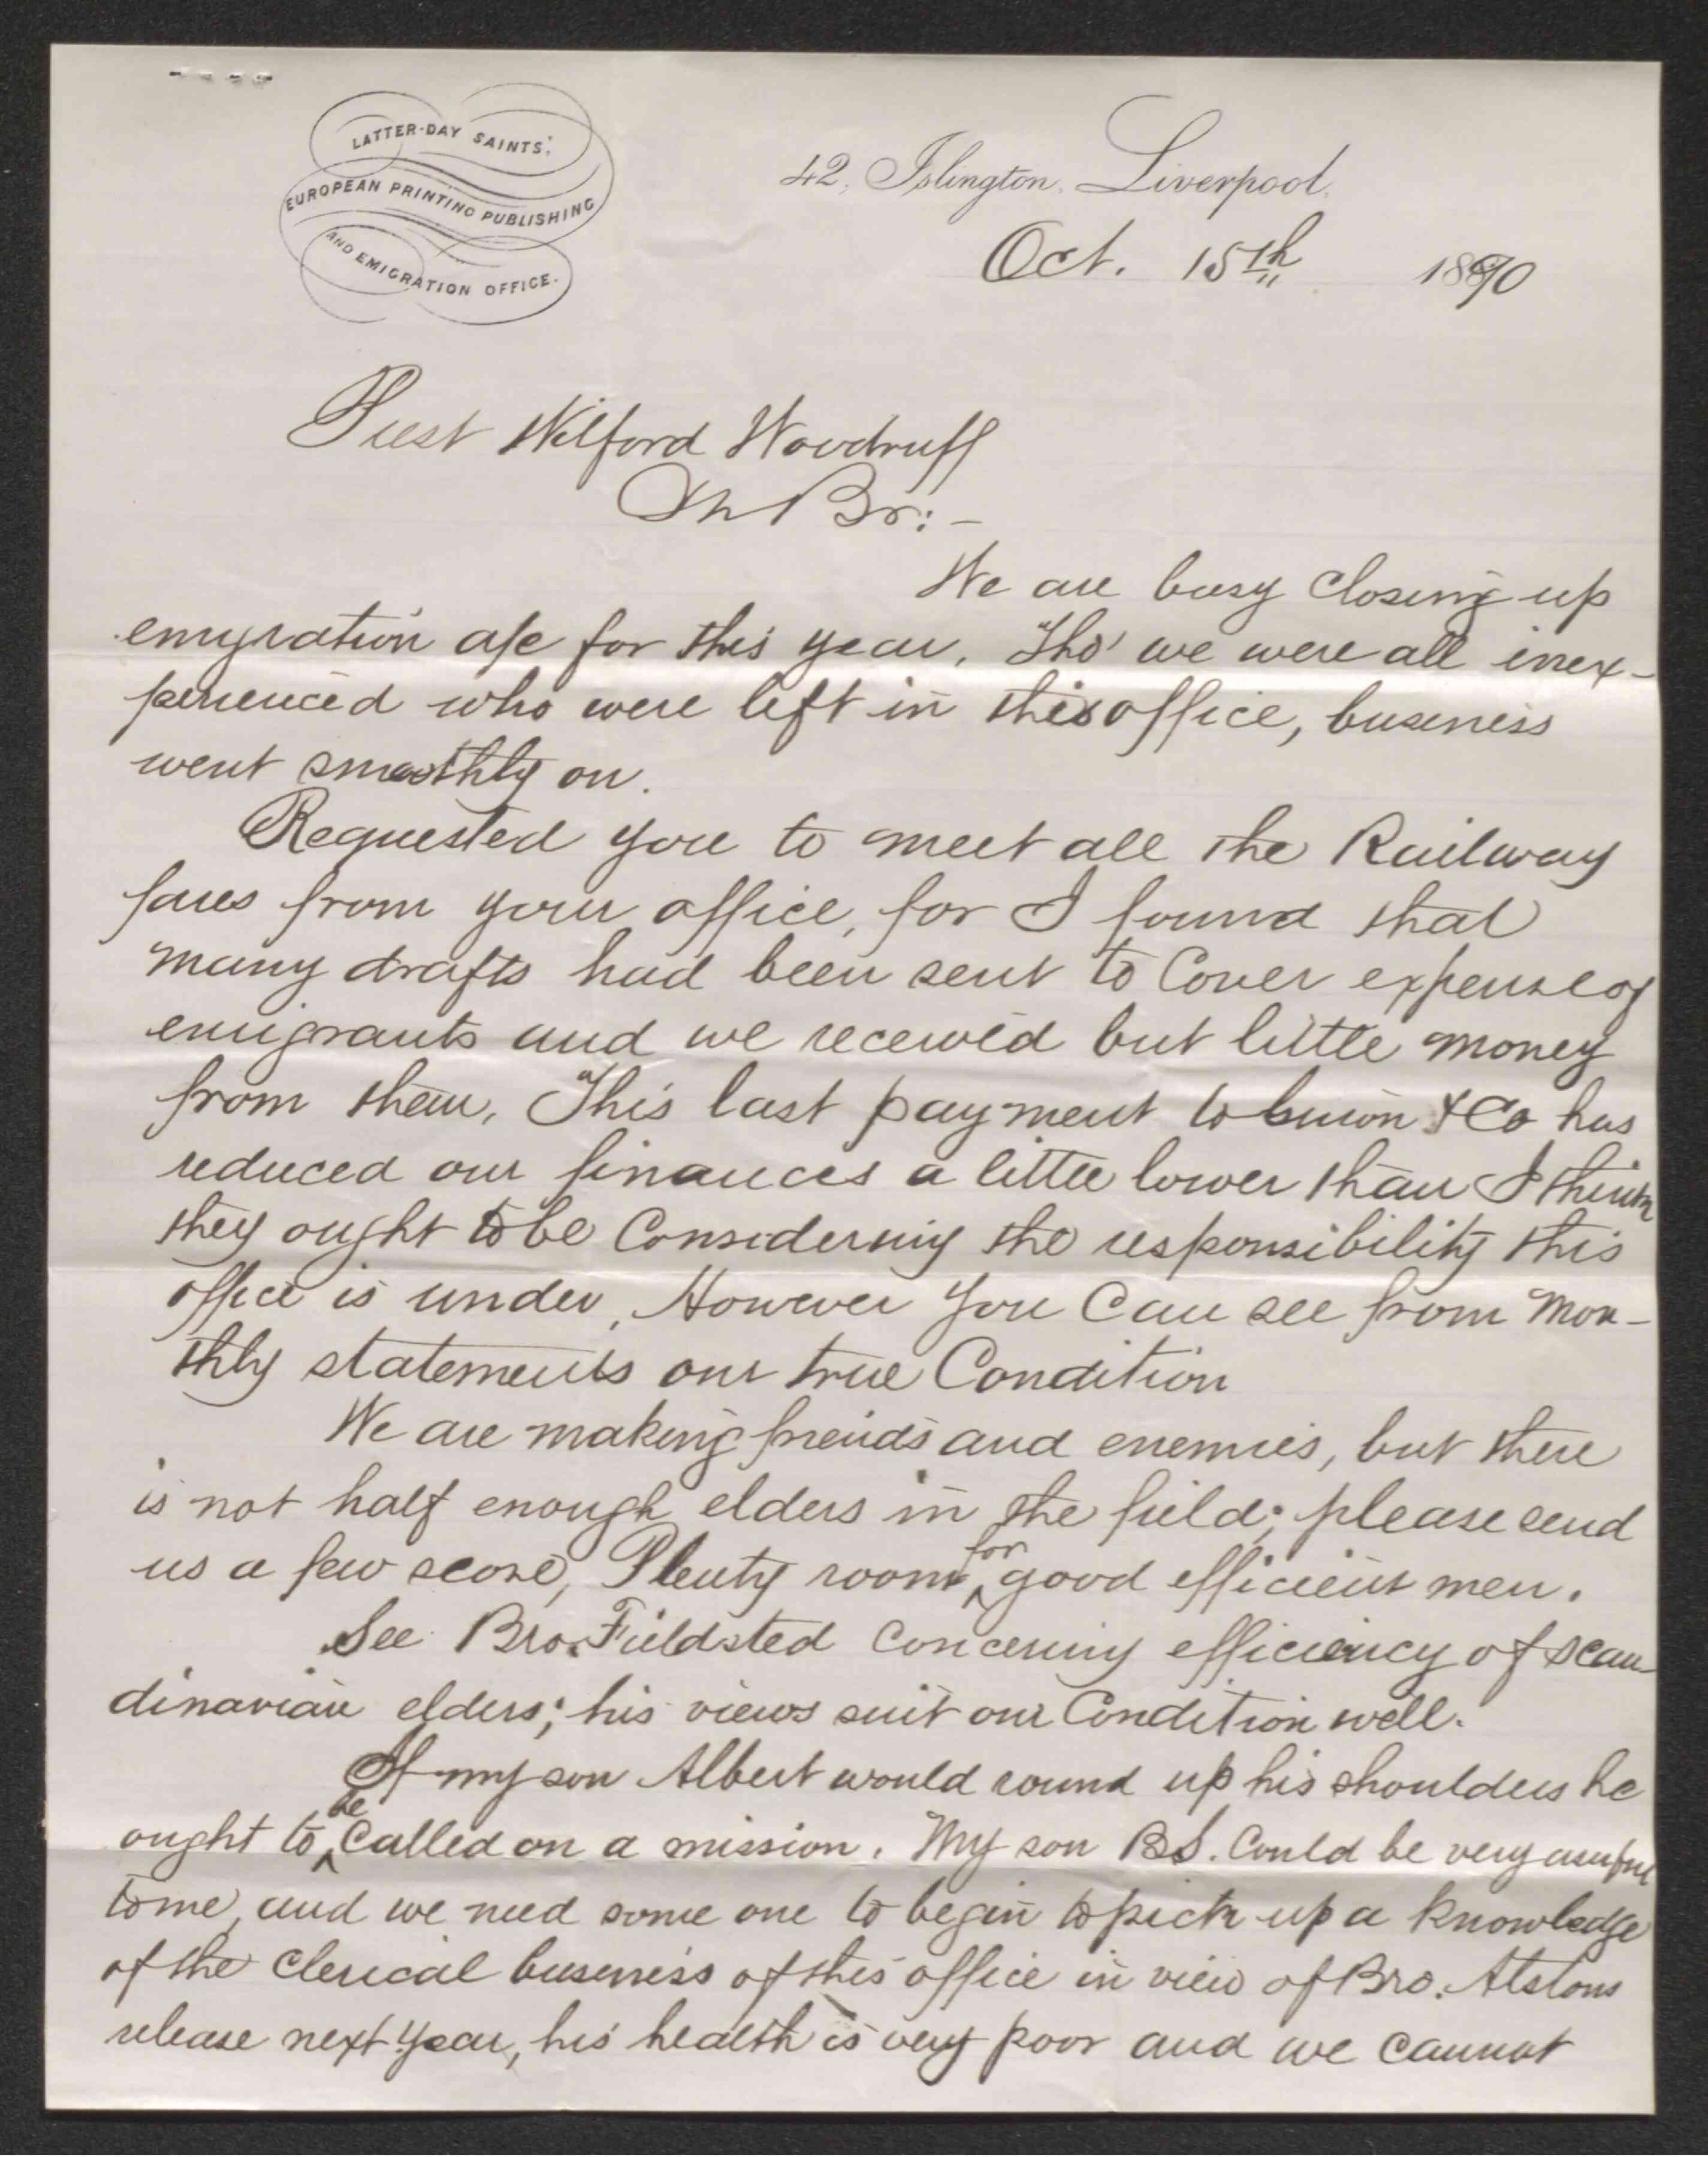 LATTER-DAY SAINTS'
EUROPEAN PRINTING PUBLISHING
AND EMIGRATION OFFICE.
42, Islington, Liverpool.
Oct. 15th 1890
Prest Wilford Woodruff
Dr Br:-
We are busy closing up
emigration a/c for this year. Tho' we were all inex-
perienced who were left in this office, business
went smoothly on.
Requested you to meet all the Railway
fares from your office, for I found that
many drafts had been sent to cover expense of
emigrants and we received but little money
from them. This last payment to Guion & Co has
reduced our finances a little lower than I think
they ought to be considering the responsibility this
office is under. However you can see from mon-
thly statements our true Condition
We are making friends and enemies, but there
is not half enough elders in the field; please send
us a few score, Plenty room for good efficient men.
See Bro. Fieldsted concerning efficiency of scan-
dinavian elders; his views suit our Condition well.
If my son Albert would round up his shoulders he
ought to be called on a mission. My son B.S. could be very useful
to me, and we need some one to begin to pick up a knowledge
of the clerical business of this office in view of Bro. Alstons
release next year, his health is very poor and we cannot